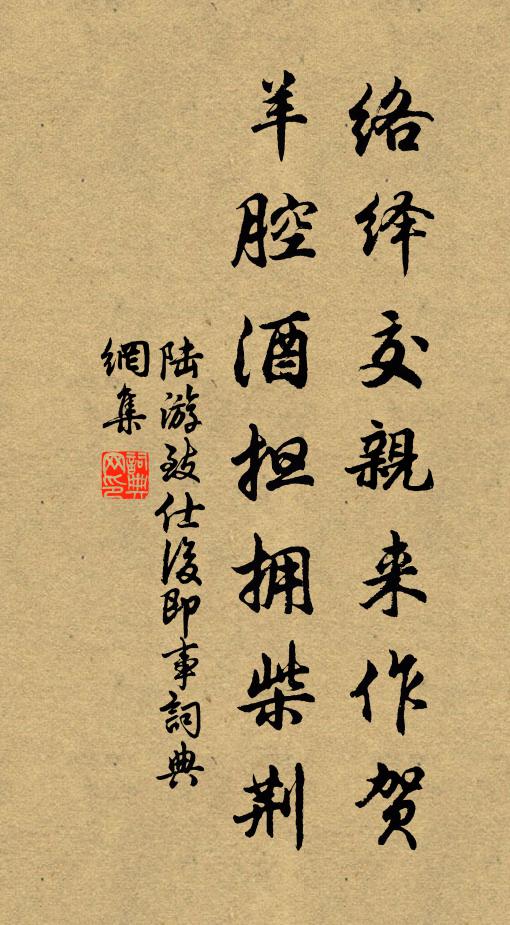 络绎交親来作贺
羊腔酒担拥柴荆
陆游致仕後即事詞典
網集
詞典网印